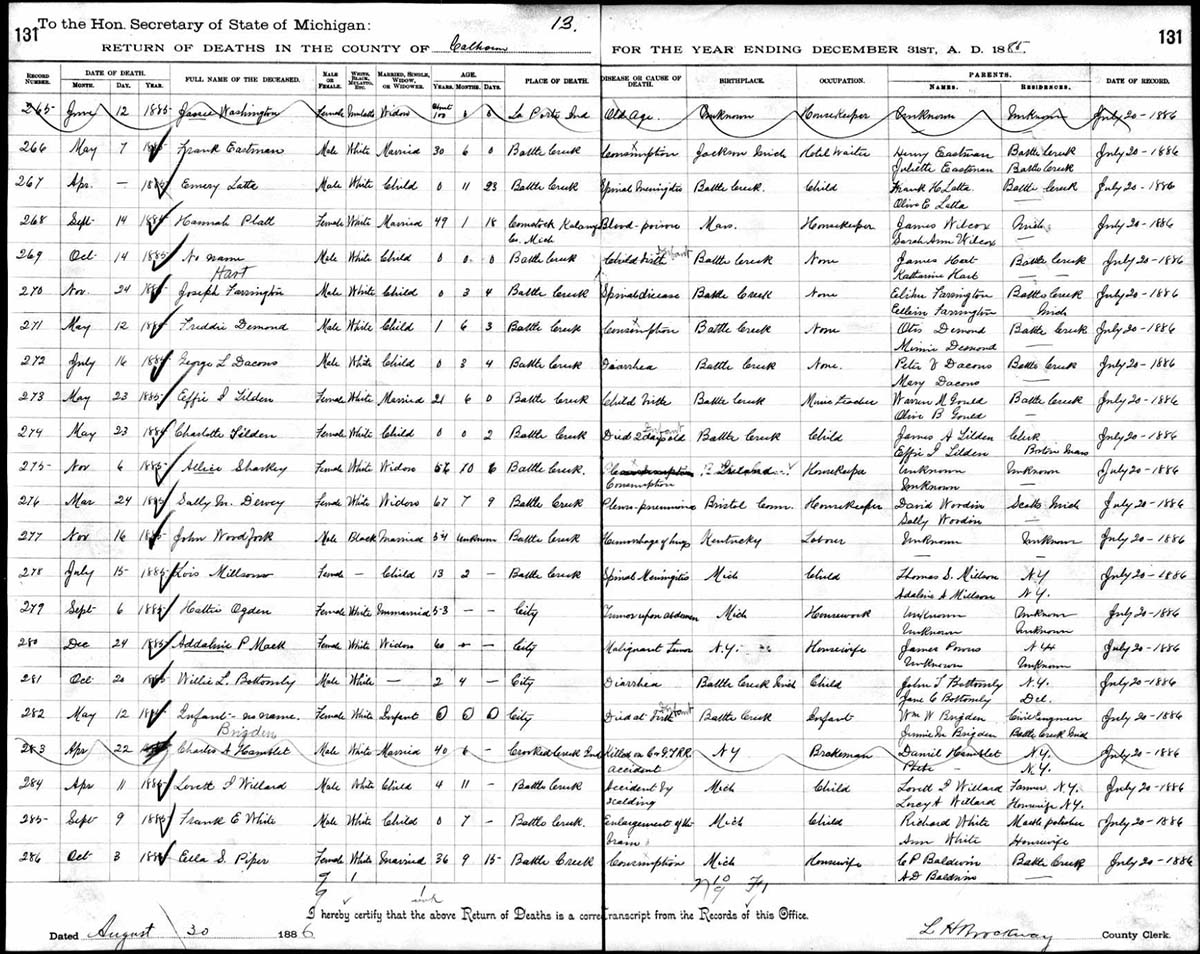 131 To the Hon. Secretary of State of Michigan: 13. 131
RETURN OF DEATHS IN THE COUNTY OF Calhoun FOR THE YEAR ENDING DECEMBER 31ST, A. D. 1885.
RECORD NUMBER. DATE OF DEATH. MONTH. DAY. YEAR. FULL NAME OF THE DECEASED. MALE OR FEMALE. WHITE, BLACK, MULATTO, ETC. MARRIED, SINGLE, WIDOW, OR WIDOWER. AGE. YEARS. MONTHS. DAYS. PLACE OF DEATH. DISEASE OR CAUSE OF DEATH. BIRTHPLACE. OCCUPATION. PARENTS. NAMES. RESIDENCES. DATE OF RECORD.
265 June 12 1885 Janie Washington Female Mulatto Widow about 100 0 0 La Porte Ind Old Age. Unknown Housekeeper Unknown Unknown July 20-1886
266 May 7 Frank Eastman Male White Married 30 6 0 Battle Creek Consumption Jackson Mich Hotel Waiter Henry Eastman Battle Creek July 20-1886
Juliette Eastman Battle Creek
267 Apr. — Emery Latta Male White Child 0 11 23 Battle Creek Spinal Meningitis Battle Creek. Child Frank H Latta. Battle Creek July 20-1886
Olive E Latta
268 Sept 14 Hannah Platt Female White Married 49 1 18 Comstock Kalamazoo Blood-poison Mass. Housekeeper James Wilcox Mich July 20-1886
Co. Mich Sarah Ann Wilcox —
269 Oct 14 1885 No name Male White Child 0 0 0 Battle Creek Child birth Infant Battle Creek None James Hart Battle Creek July 20-1886
Hart Katharine Hart
270 Nov. 24 Joseph Farrington Male White Child 0 3 4 Battle Creek Spinal disease Battle Creek None Elihu Farrington Battle Creek July 20-1886
Farrington Mich
271 May 12 Freddie Demond Male White Child 1 6 3 Battle Creek Consumption Battle Creek None Otis Demond Battle Creek July 20-1886
Minnie Demond —
272 July 16 George L Dacons Male White Child 0 3 4 Battle Creek Diarrhea Battle Creek None. Peter D Dacons Battle Creek July 20-1886
Mary Dacons —
273 May 23 1885 Effie I Tilden Female White Married 21 6 0 Battle Creek Child birth Battle Creek Music Teacher Warren M Gould Battle Creek July 20-1886
Olive B Gould —
274 May 23 Charlotte Tilden Female White Child 0 0 2 Battle Creek Died 2 days old Infant Battle Creek Child James A Tilden Clerk July 20-1886
Effie I Tilden Boston Mass
275 Nov 6 1885 Allice Sharkey Female White Widow 56 10 6 Battle Creek. Consumption Ireland Housekeeper Unknown Unknown July 20-1886
Consumption Unknown —
276 Mar 24 1885 Sally M. Dewey Female White Widow 67 7 9 Battle Creek Pleuro pneumonia Bristol Conn. Housekeeper David Wordin Scotts Mich July 20-1886
Sally Wordin —
277 Nov 16 John Woodfork Male Black Married 34 Unknown Battle Creek Hemorrhage of lungs Kentucky Laborer Unknown Unknown July 20-1886
— —
278 July 15 1885 Lois Millson Female — Child 13 2 — Battle Creek Spinal Meningitis Mich Child Thomas S. Millson N.Y July 20-1886
Adaline A Millson N.Y.
279 Sept 6 Hattie Ogden Female White Unmarried 53 — City Tumor upon abdomen Mich Housework Unknown Unknown July 20-1886
Unknown Unknown
280 Dec 24 1885 Addaline P Mack Female White Widow 60 — — City Malignant Tumor N.Y. Housewife James Powers N H July 20-1886
Unknown Unknown
281 Oct 20 Willie L. Bottomly Male White — 2 4 — City Diarrhea Battle Creek Mich Child John T Bottomly N.Y. July 20-1886
Jane C Bottomly Del.
282 May 12 Infant - no name. Female White Infant 0 0 0 City Died at birth Infant Battle Creek Infant Wm W Brigden Civil Engineer July 20-1886
Brigden Jennie M Brigden Battle Creek Mich
283 Apr 22 Charles A Hamblet Male White Married 40 6 — Crooked Creek Ind Killed on C & G T RR. N Y Brakeman Daniel Hamblet N.Y. July 20-1886
accident N.Y.
284 Apr 11 Lovett I Willard Male White Child 4 11 — Battle Creek Accident by Mich Child Lovett I Willard Farmer N.Y. July 20-1886
scalding Lucy A Willard Housewife N.Y.
285 Sept 9 Frank E White Male White Child 0 7 — Battle Creek. Enlargement of the Mich Child Richard White Marble polisher July 20-1886
brain Ann White Housewife
286 Oct 3 Ella S. Piper Female White Married 36 9 15 Battle Creek Consumption Mich Housewife C P Baldwin Battle Creek July 20-1886
A D Baldwin —
I hereby certify that the above Return of Deaths is a correct transcript from the Records of this Office.
Dated August 30 1886 L H Brockway County Clerk.